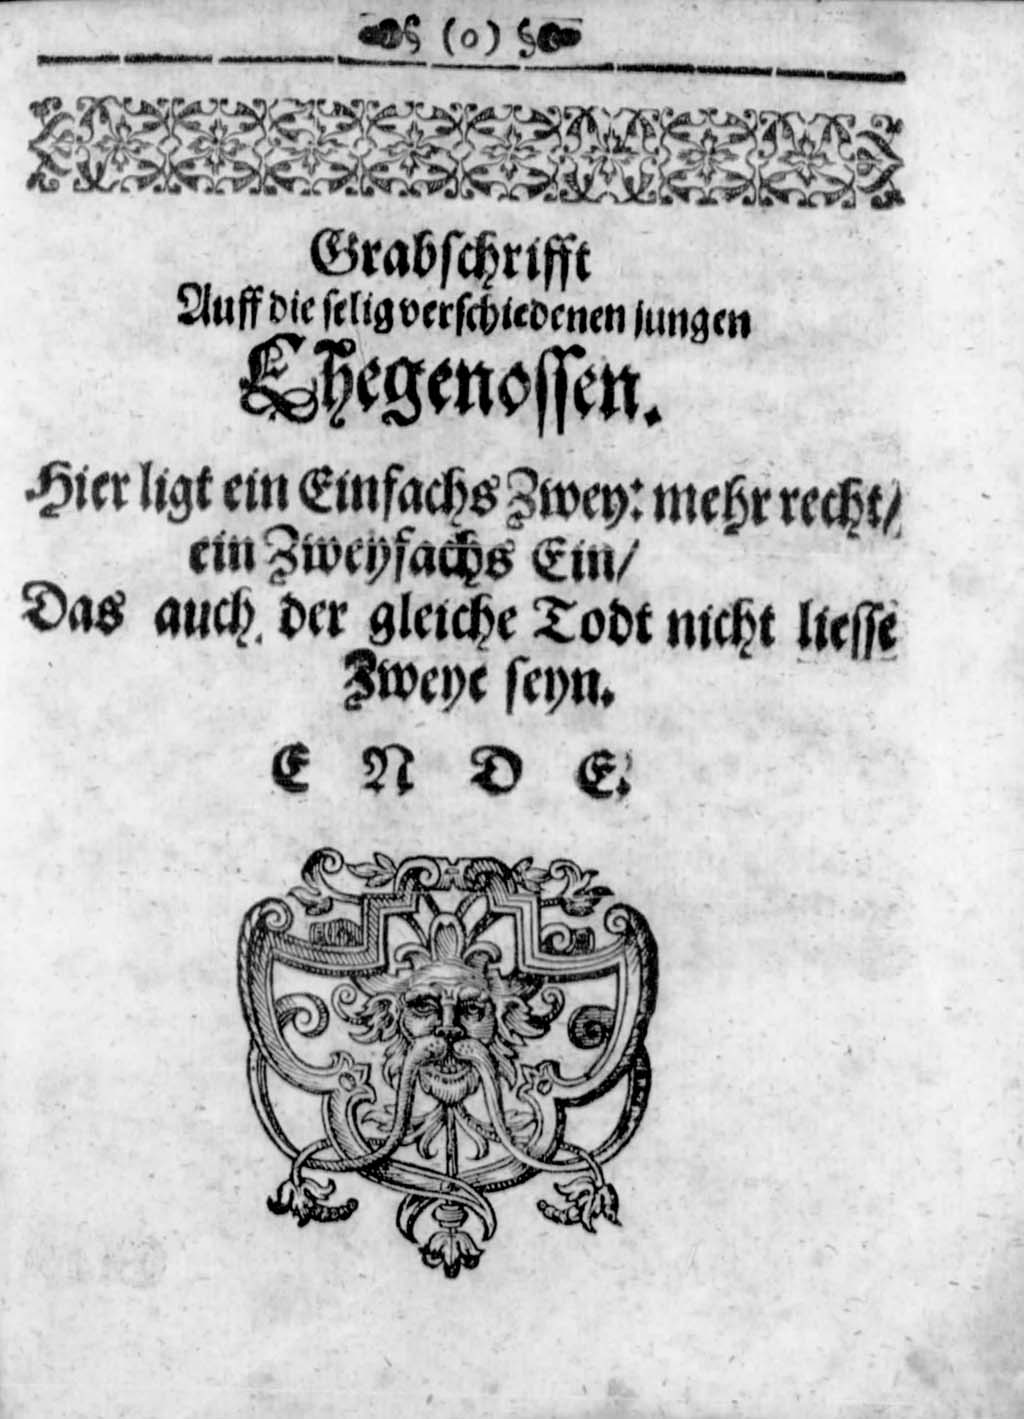 (0)
Grabschrifft
Auff die selig verschiedenen jungen
Ehegenossen.
Hier ligt ein Einfachs Zwey: mehr recht/
ein Zweyfachs Ein/
Das auch der gleiche Todt nicht liesse
Zweye seyn.
E N D E.